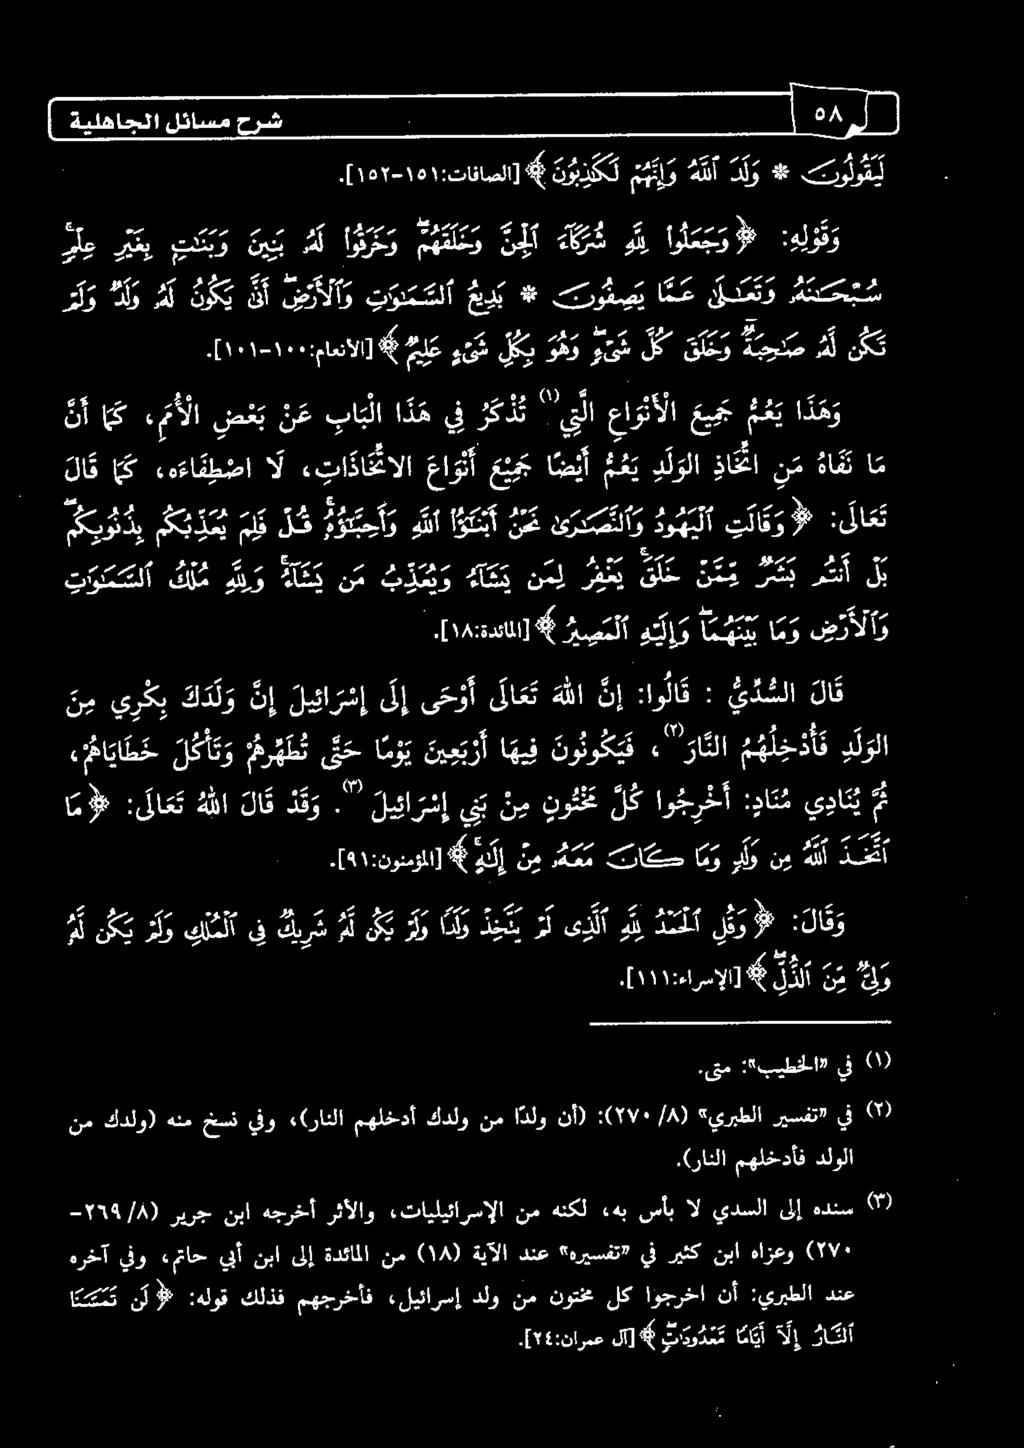 ٥٨
شرح مسائل الجاهلية
لَيَقُولُونَ * وَلَدَ اللَّهُ وَإِنَّهُمْ لَكَاذِبُونَ ﴾ [الصافات:١٥١-١٥٢].
وَقَوْلِهِ: ﴿ وَجَعَلُوا لِلَّهِ شُرَكَآءَ الْجِنَّ وَخَلَقَهُمْ وَخَرَقُوا لَهُ بَنِينَ وَبَنَاتٍ بِغَيْرِ عِلْمٍ
سُبْحَانَهُ وَتَعَالَى عَمَّا يَصِفُونَ * بَدِيعُ السَّمَاوَاتِ وَالْأَرْضِ أَنَّى يَكُونُ لَهُ وَلَدٌ وَلَمْ
تَكُنْ لَهُ صَاحِبَةٌ وَخَلَقَ كُلَّ شَيْءٍ وَهُوَ بِكُلِّ شَيْءٍ عَلِيمٌ ﴾ [الأنعام:١٠٠-١٠١].
وَهَذَا يَعُمُّ جَمِيعَ الأَنْوَاعِ الَّتِي (١) تُذْكَرُ فِي هَذَا الْبَابِ عَنْ بَعْضِ الأُمَمِ، كَمَا أَنَّ
مَا نَفَاهُ مِنَ اتِّخَاذِ الوَلَدِ يَعُمُّ أَيْضًا جَمِيْعَ أَنْوَاعَ الاتِّخَاذَاتِ، لَا اصْطِفَاءَه، كَمَا قَالَ
تَعَالَى: ﴿ وَقَالَتِ الْيَهُودُ وَالنَّصَارَى نَحْنُ أَبْنَاؤُا اللَّهِ وَأَحِبَّاؤُهُ قُلْ فَلِمَ يُعَذِّبُكُم بِذُنُوبِكُم
بَلْ أَنتُم بَشَرٌ مِّمَّنْ خَلَقَ يَغْفِرُ لِمَن يَشَآءُ وَيُعَذِّبُ مَن يَشَآءُ وَلِلَّهِ مُلْكُ السَّمَاوَاتِ
وَالْأَرْضِ وَمَا بَيْنَهُمَا وَإِلَيْهِ الْمَصِيرُ ﴾ [المائدة:١٨].
قَالَ السُّدِّيُّ : قَالُوا: إنَّ اللهَ تَعَالَى أَوْحَى إلَى إسْرَائِيلَ إنَّ وَلَدَكَ بِكْرِي مِنَ
الوَلَدِ فَأُدْخِلُهُمُ النَّارَ (٢)، فَيَكُونُونَ فِيهَا أَرْبَعِينَ يَوْمًا حَتَّى تُطَهِّرُهُمْ وَتَأْكُلَ خَطَايَاهُمْ،
ثُمَّ يُنَادِي مُنَادٍ: أَخْرِجُوا كُلَّ مَخْتُونٍ مِنْ بَنِي إسْرَائِيلَ (٣). وَقَدْ قَالَ اللهُ تَعَالَى: ﴿ مَا
اتَّخَذَ اللَّهُ مِن وَلَدٍ وَمَا كَانَ مَعَهُ مِنْ إِلَهٍ ﴾ [المؤمنون:٩١].
وَقَالَ: ﴿ وَقُلِ الْحَمْدُ لِلَّهِ الَّذِي لَمْ يَتَّخِذْ وَلَدًا وَلَمْ يَكُن لَّهُ شَرِيكٌ فِي الْمُلْكِ وَلَمْ يَكُن لَّهُ
وَلِيٌّ مِّنَ الذُّلِّ ﴾ [الإسراء:١١١].
(١) في «الخطيب»: متى.
(٢) في «تفسير الطبري» (٨/ ٢٧٠): (أن ولدًا من ولدك أدخلهم النار)، وفي نسخ منه (ولدك من
الولد فأدخلهم النار).
(٣) سنده إلى السدي لا بأس به، لكنه من الإسرائيليات، والأثر أخرجه ابن جرير (٨/ ٢٦٩-
٢٧٠) وعزاه ابن كثير في «تفسيره» عند الآية (١٨) من المائدة إلى ابن أبي حاتم، وفي آخره
عند الطبري: أن اخرجوا كل مختون من ولد إسرائيل، فأخرجهم فذلك قوله: ﴿ لَن تَمَسَّنَا
النَّارُ إِلَّآ أَيَّامًا مَّعْدُودَاتٍ ﴾ [آل عمران:٢٤].